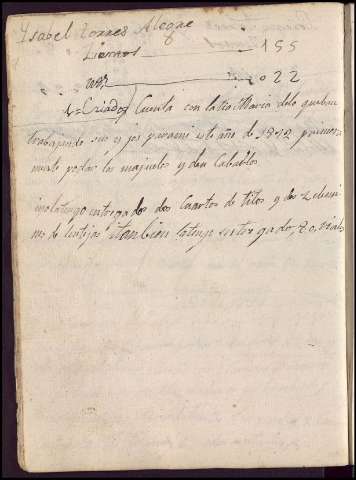 Ysabel Torres Alegre
Liornos 155
022
Criados Cuenta con la tia Maria delo que ban
trabajando sus yjos para mi el año de 1812 primera
mente podar los majuelos y dan Caballos
ino latengo entregados dos Cuartos de titos y dos zelemi
nes de lentijas tanbien latengo entregado, 20, rials